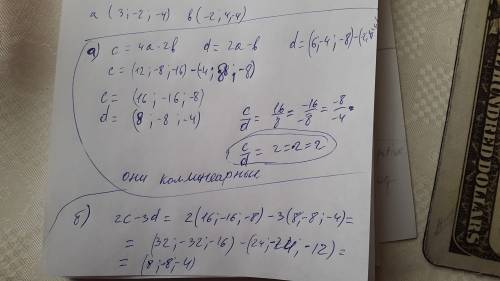 a (3;-2,-4) b(-2,4,-4)
а) c = 4a-2b d = 2a-b d=(6;-4;-8)-
c = (12;-8;-16)-(-4;8;-8)
c = (16;-16;-8)
d = (8;-8;-4)
c/d = 16/8 = -16/-8 = -8/-4
c/d = 2=2=2
они коллинеарные
б) 2c-3d = 2(16;-16;-8)-3(8;-8;-4)=
= (32;-32;-16)-(24;-24;-12)=
= (8;-8;-4)